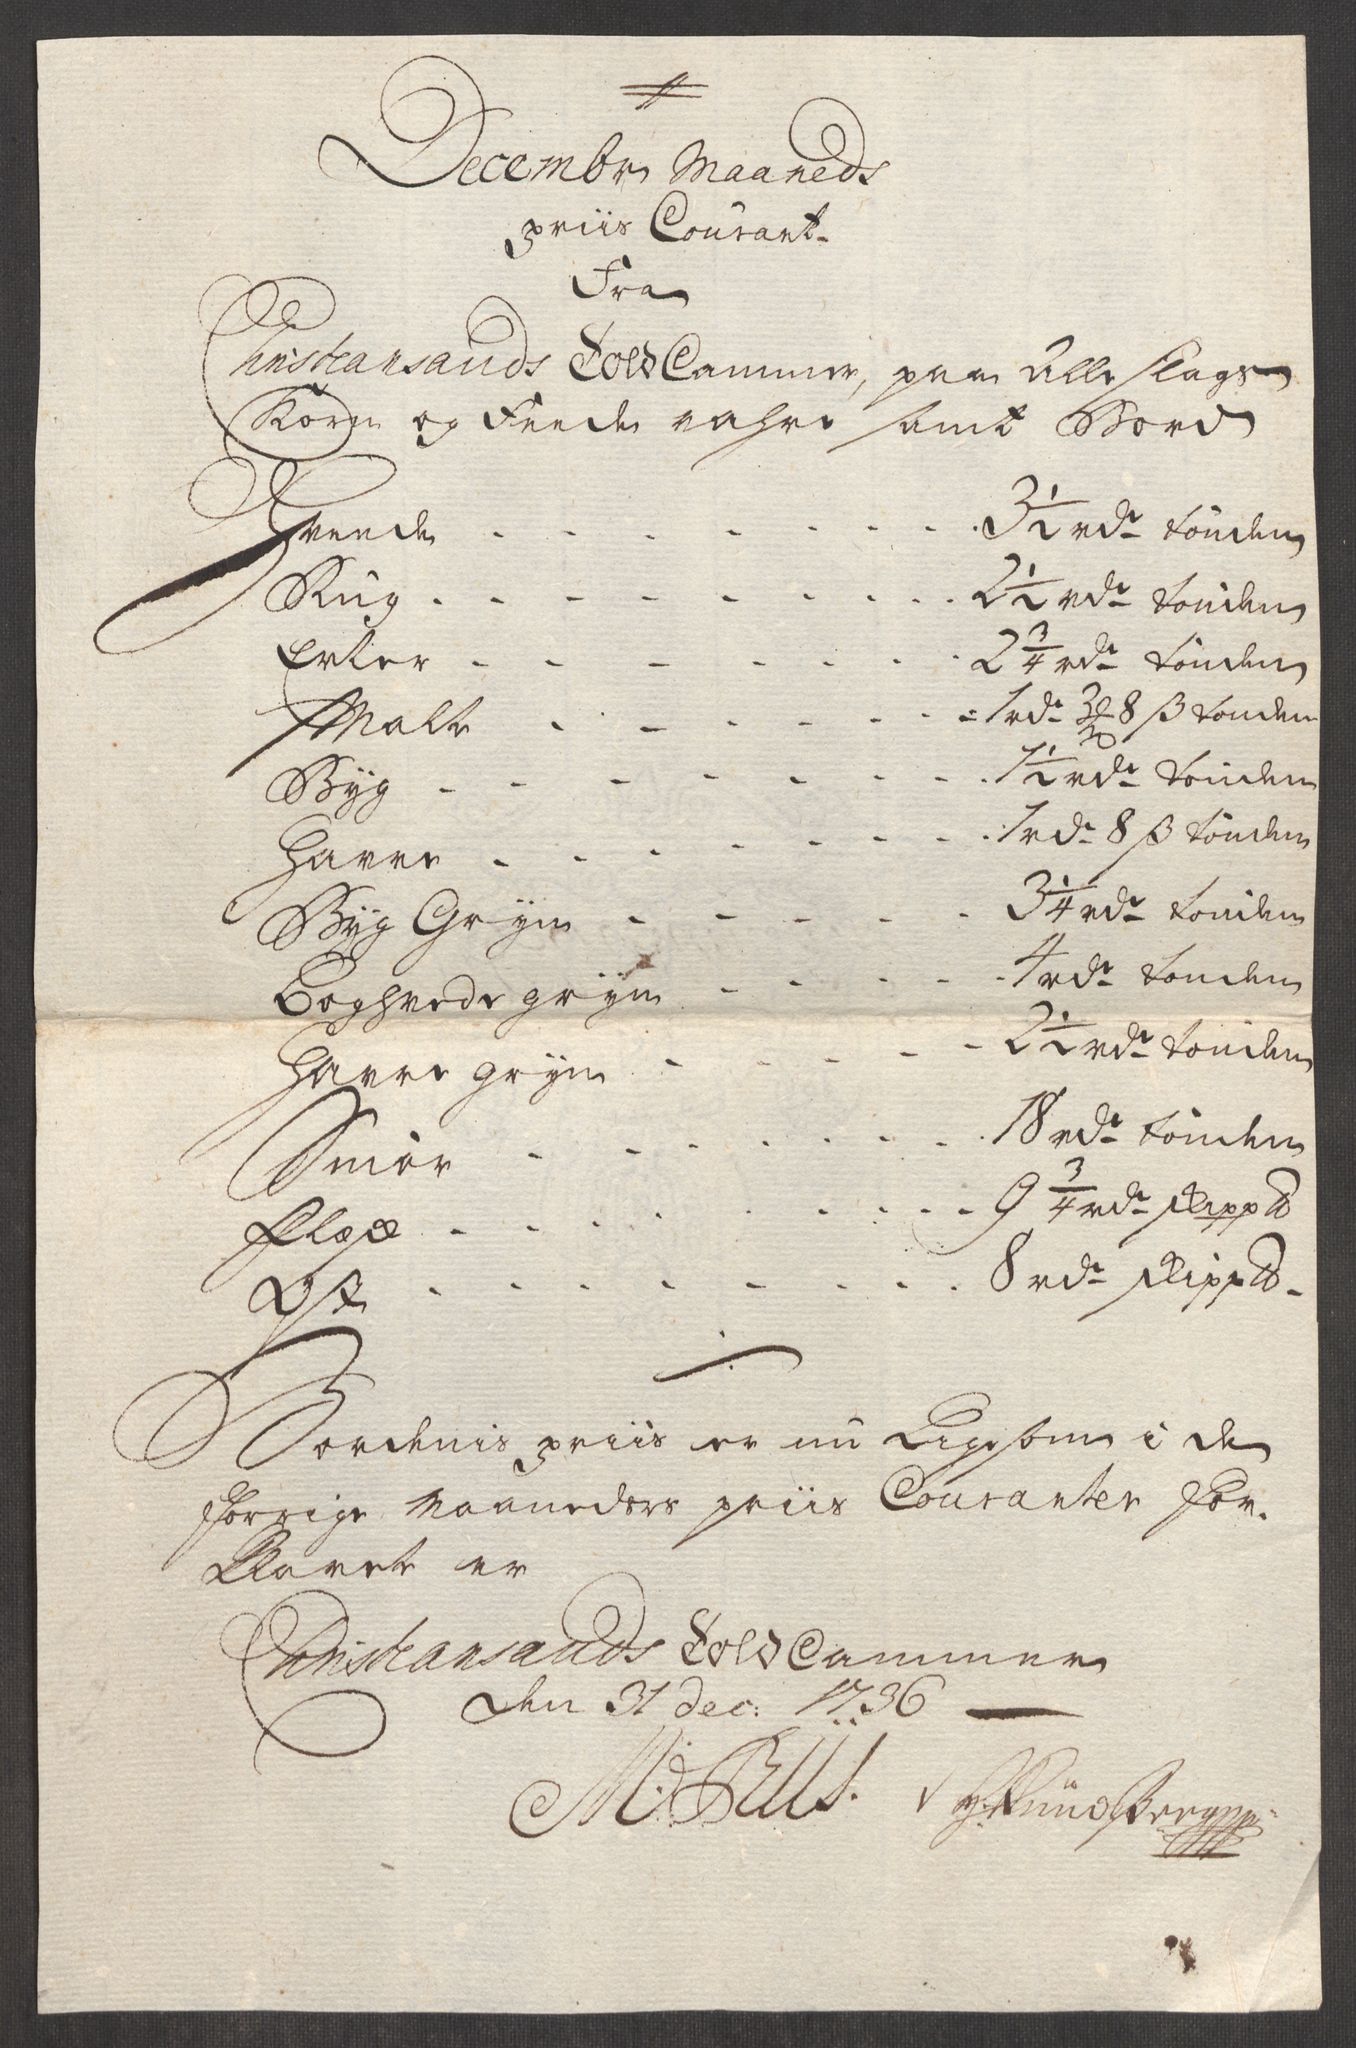 Decembr Maaneds
priis Courant
Fra
Christiansands Told Cammer, paa Alle slags
Korn og Feede vahre samt Bord
Hveede - - - 3 1/2 rdr tønden
Rug - - - 2 1/2 rdr tønden
Erter - - - 2 3/4 rdr tønden
Malt - - - 1 rdr 3 8 ß tønden
Byg - - - 1 1/2 rdr tønden
Havre - - - 1 rdr 8 ß tønden
Byg Gryn - - - 3 1/4 rdr tønden
Boghvede gryn - - - 4 rdr tønden
Havre gryn - - - 2 1/2 rdr tønden
Smør - - - 18 rdr tønden
Flesk - - - 9 3/4 rdr skipp℔
Ost - - - 8 rdr skipp℔
Bordenis priis er nu Ligesom i de
forrige Maaneders priis Couranter for-
Klaret er
Christiansands Told Cammer
den 31 dec: 1736